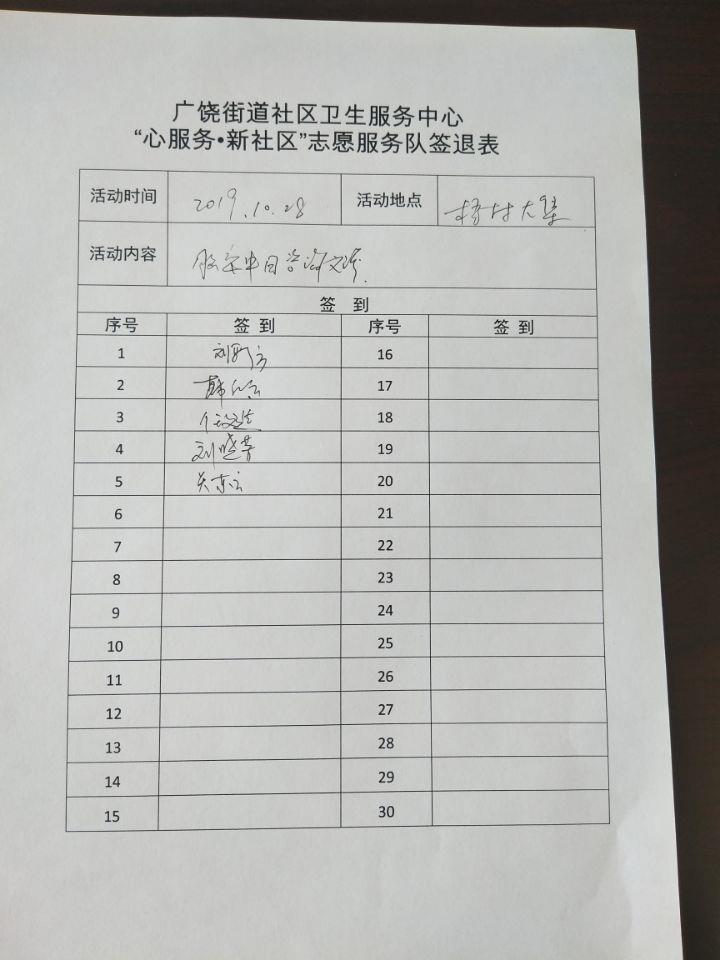 广饶街道社区卫生服务中心
“心服务•新社区”志愿服务队签退表
活动时间 2019.10.28 活动地点 杨村大集
活动内容
签 到
序号 签 到 序号 签 到
1 16
2 韩 17
3 18
4 刘晓芳 19
5 关东云 20
6 21
7 22
8 23
9 24
10 25
11 26
12 27
13 28
14 29
15 30